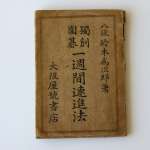 八段鈴木為次郎著
獨創
圍碁
一週間速進法
大阪屋號書店